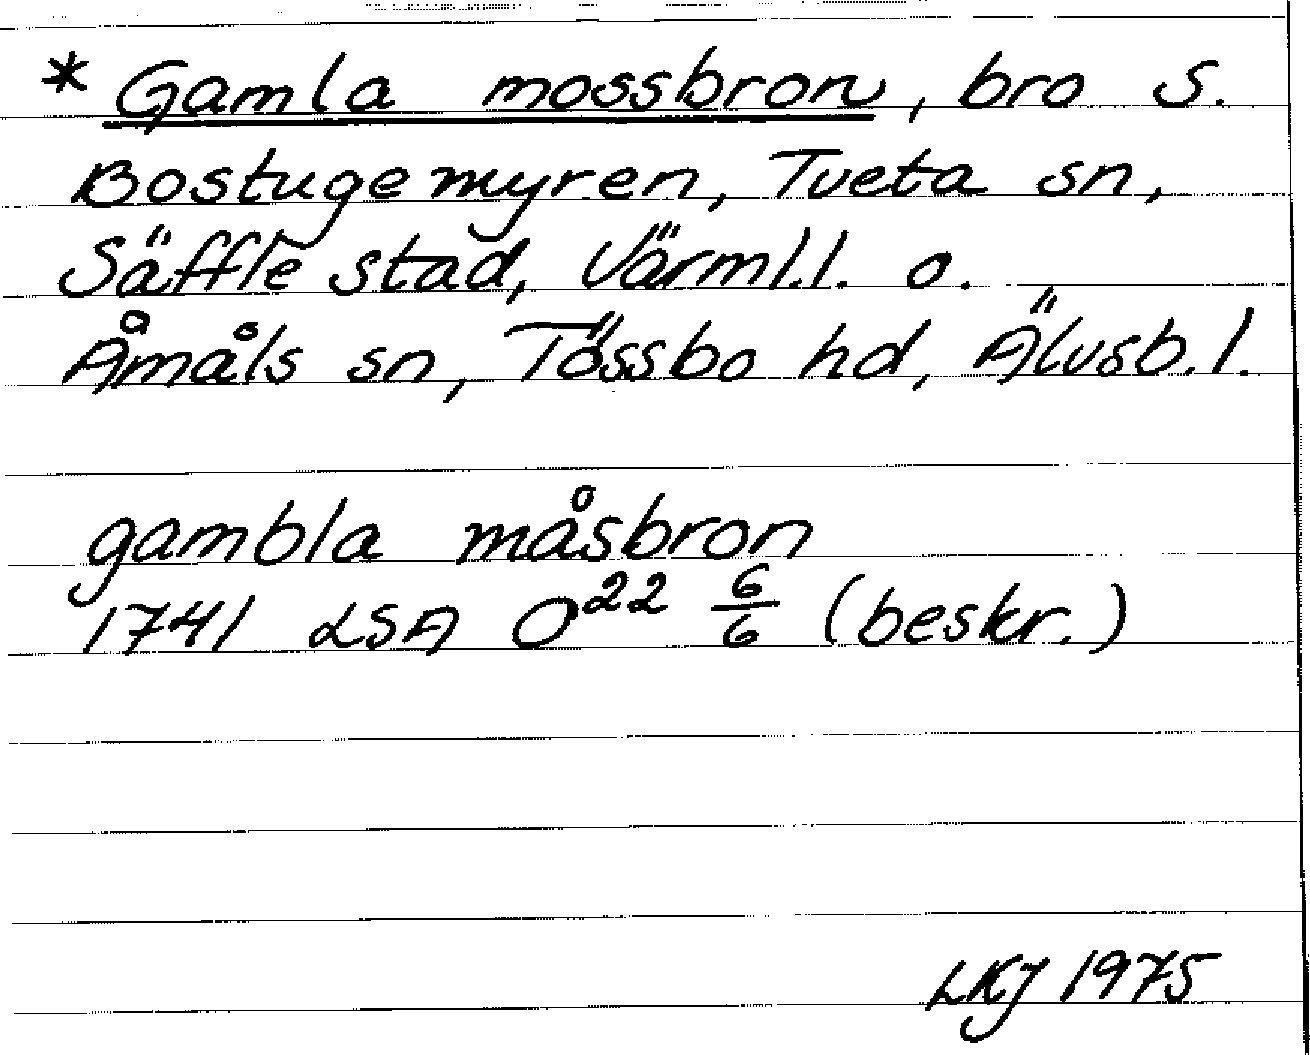 * Gamla mossbron, bro S.
Bostugemyren, Tveta sn,
Säffle stad, Värml.l. o.
Åmåls sn, Tössbo hd, Älvsb.l.
gambla måsbron
1741 LSA O²² 6/6 (beskr.)
LKJ 1975